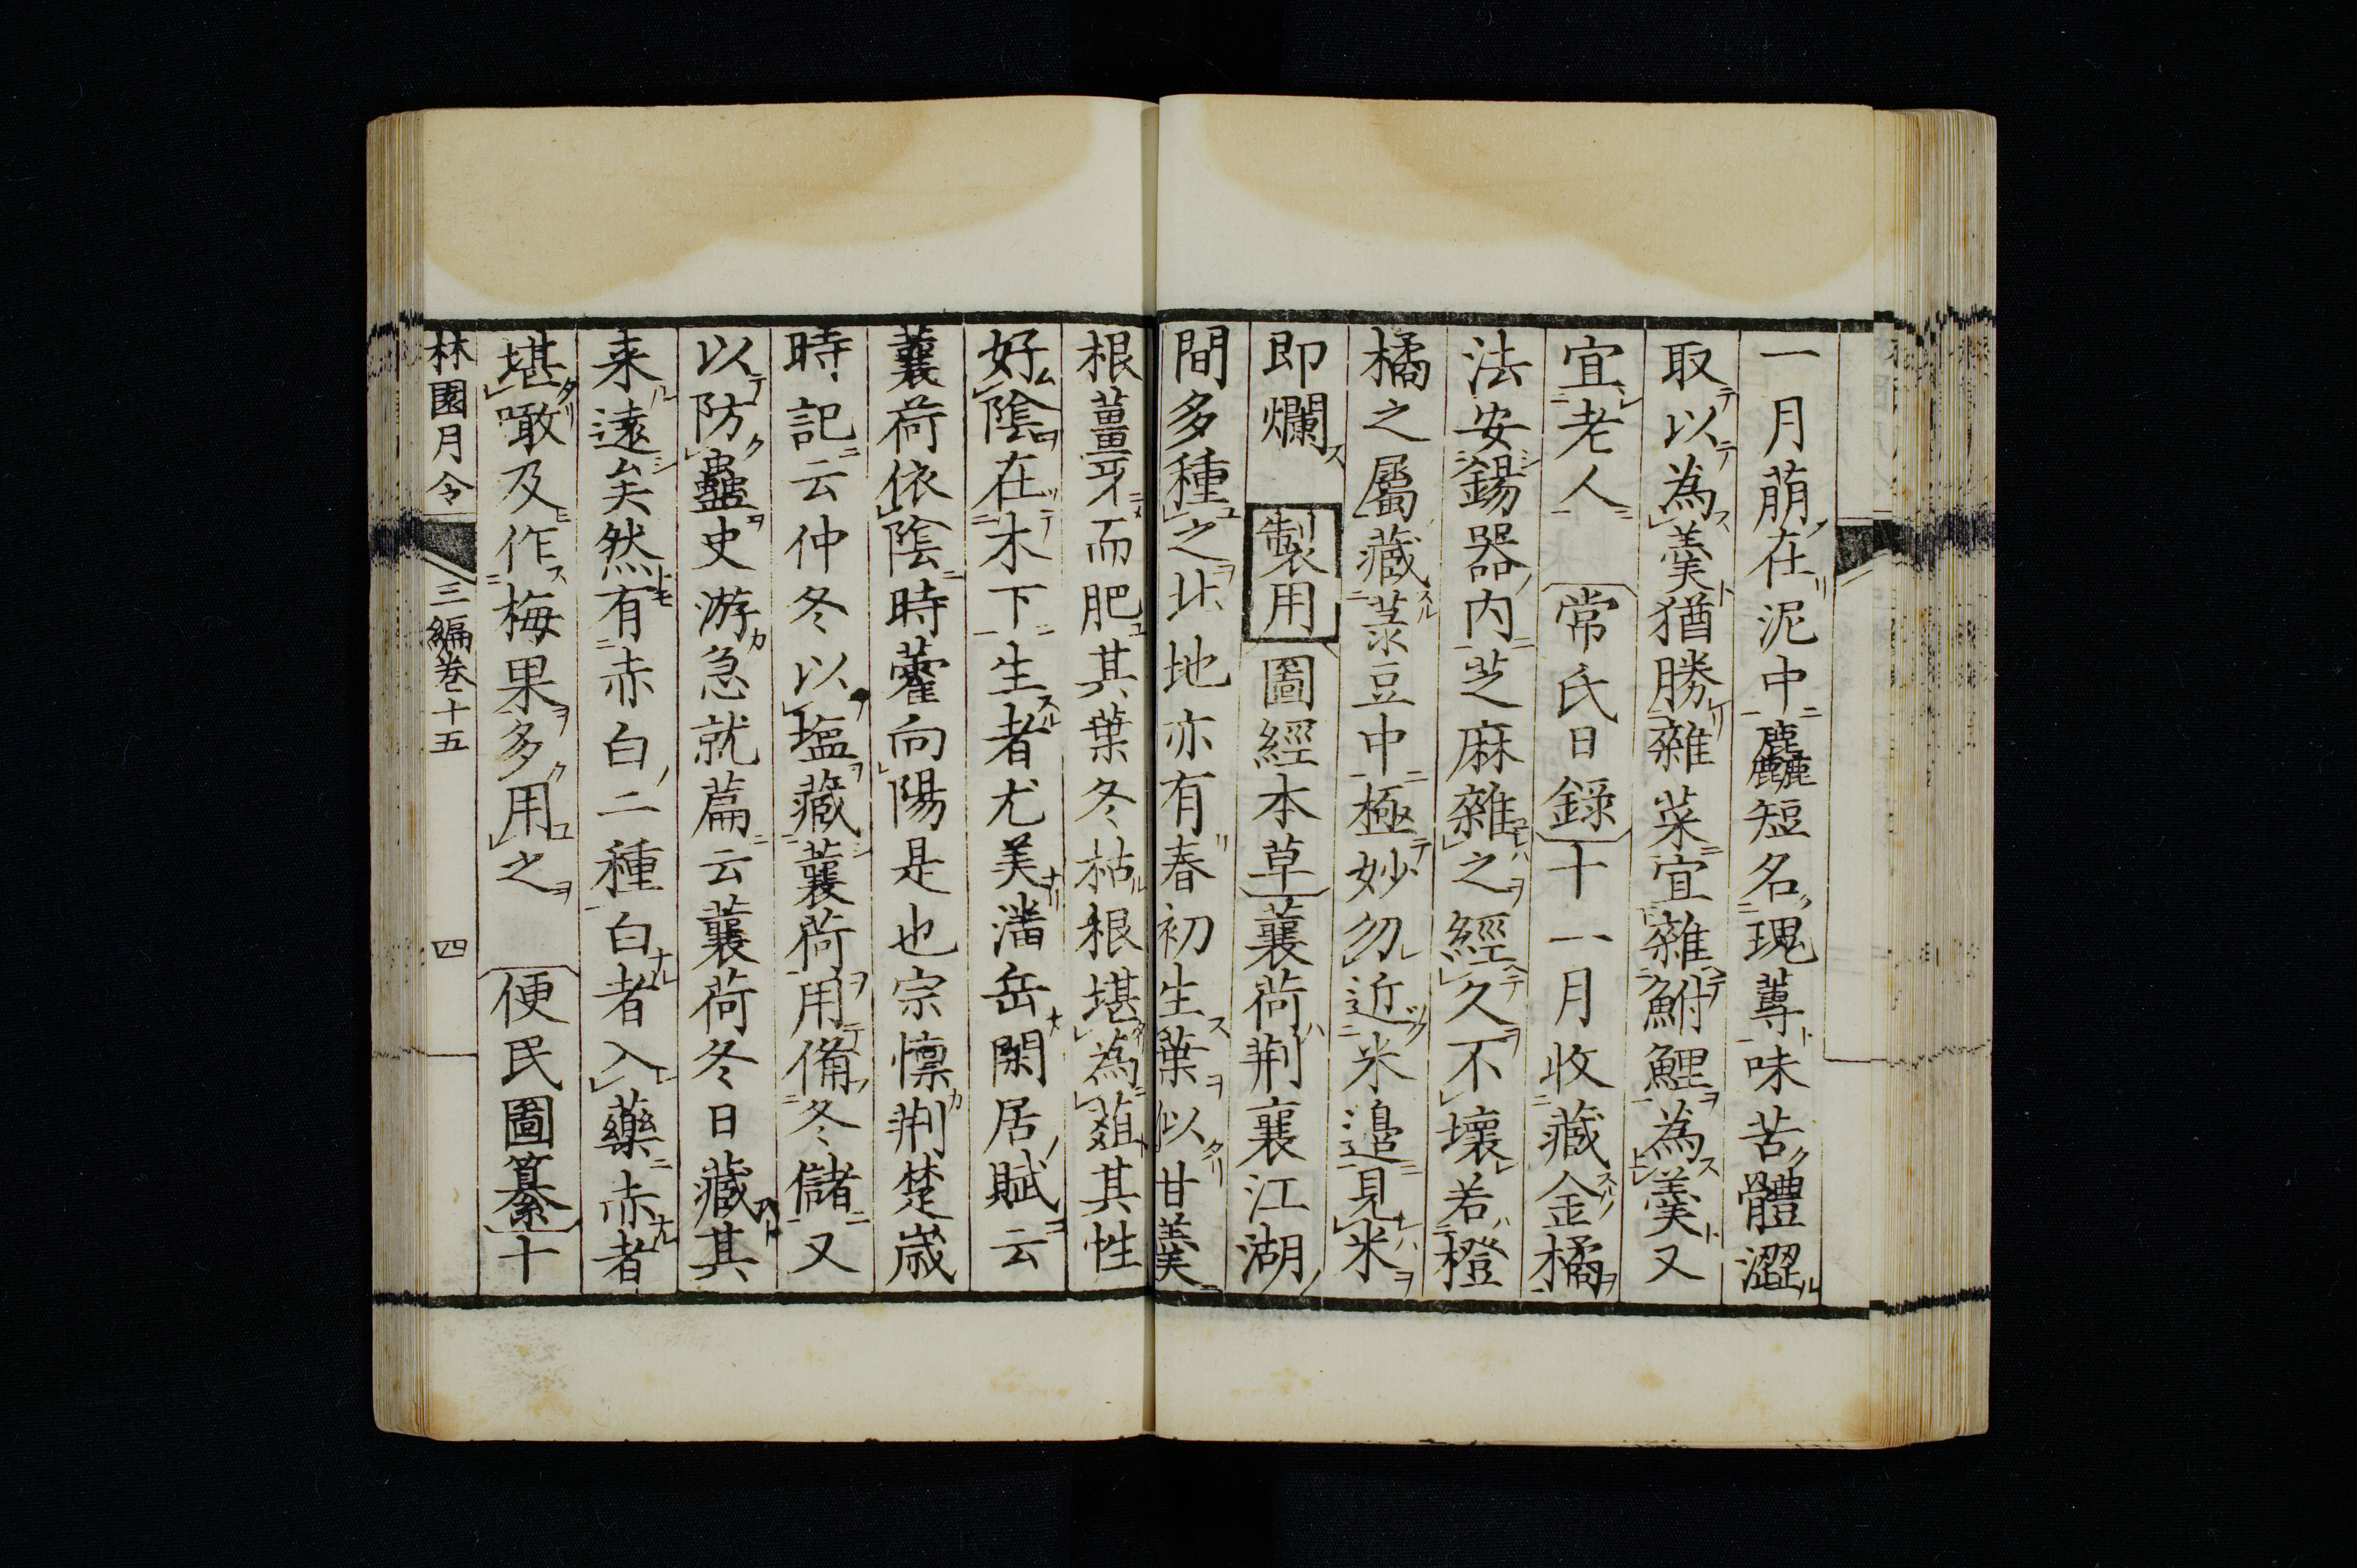 一月萠在泥中麤短名瑰蓴味苦體澀
取以為羹猶勝雜菜宜雜鮒鯉為羹又
宜老人 常氏日録 十一月收藏金橘
法安錫器内芝麻雜之經久不壞若橙
橘之屬藏菉豆中極妙勿近米邉見米
即爛 製用 圖經本草 蘘荷荆襄江湖
間多種之北地亦有春初生葉似甘蕉
根薑牙而肥其葉冬枯根堪為葅其性
好陰在木下生者尤美潘岳閑居賦云
蘘荷依陰時藿向陽是也宗懍荆楚歳
時記云仲冬以塩藏蘘荷用備冬儲又
以防蠱史游急就篇云蘘荷冬日藏其
来遠矣然有赤白二種白者入藥赤者
堪噉及作梅果多用之 便民圖纂 十
林園月令 三編巻十五 四